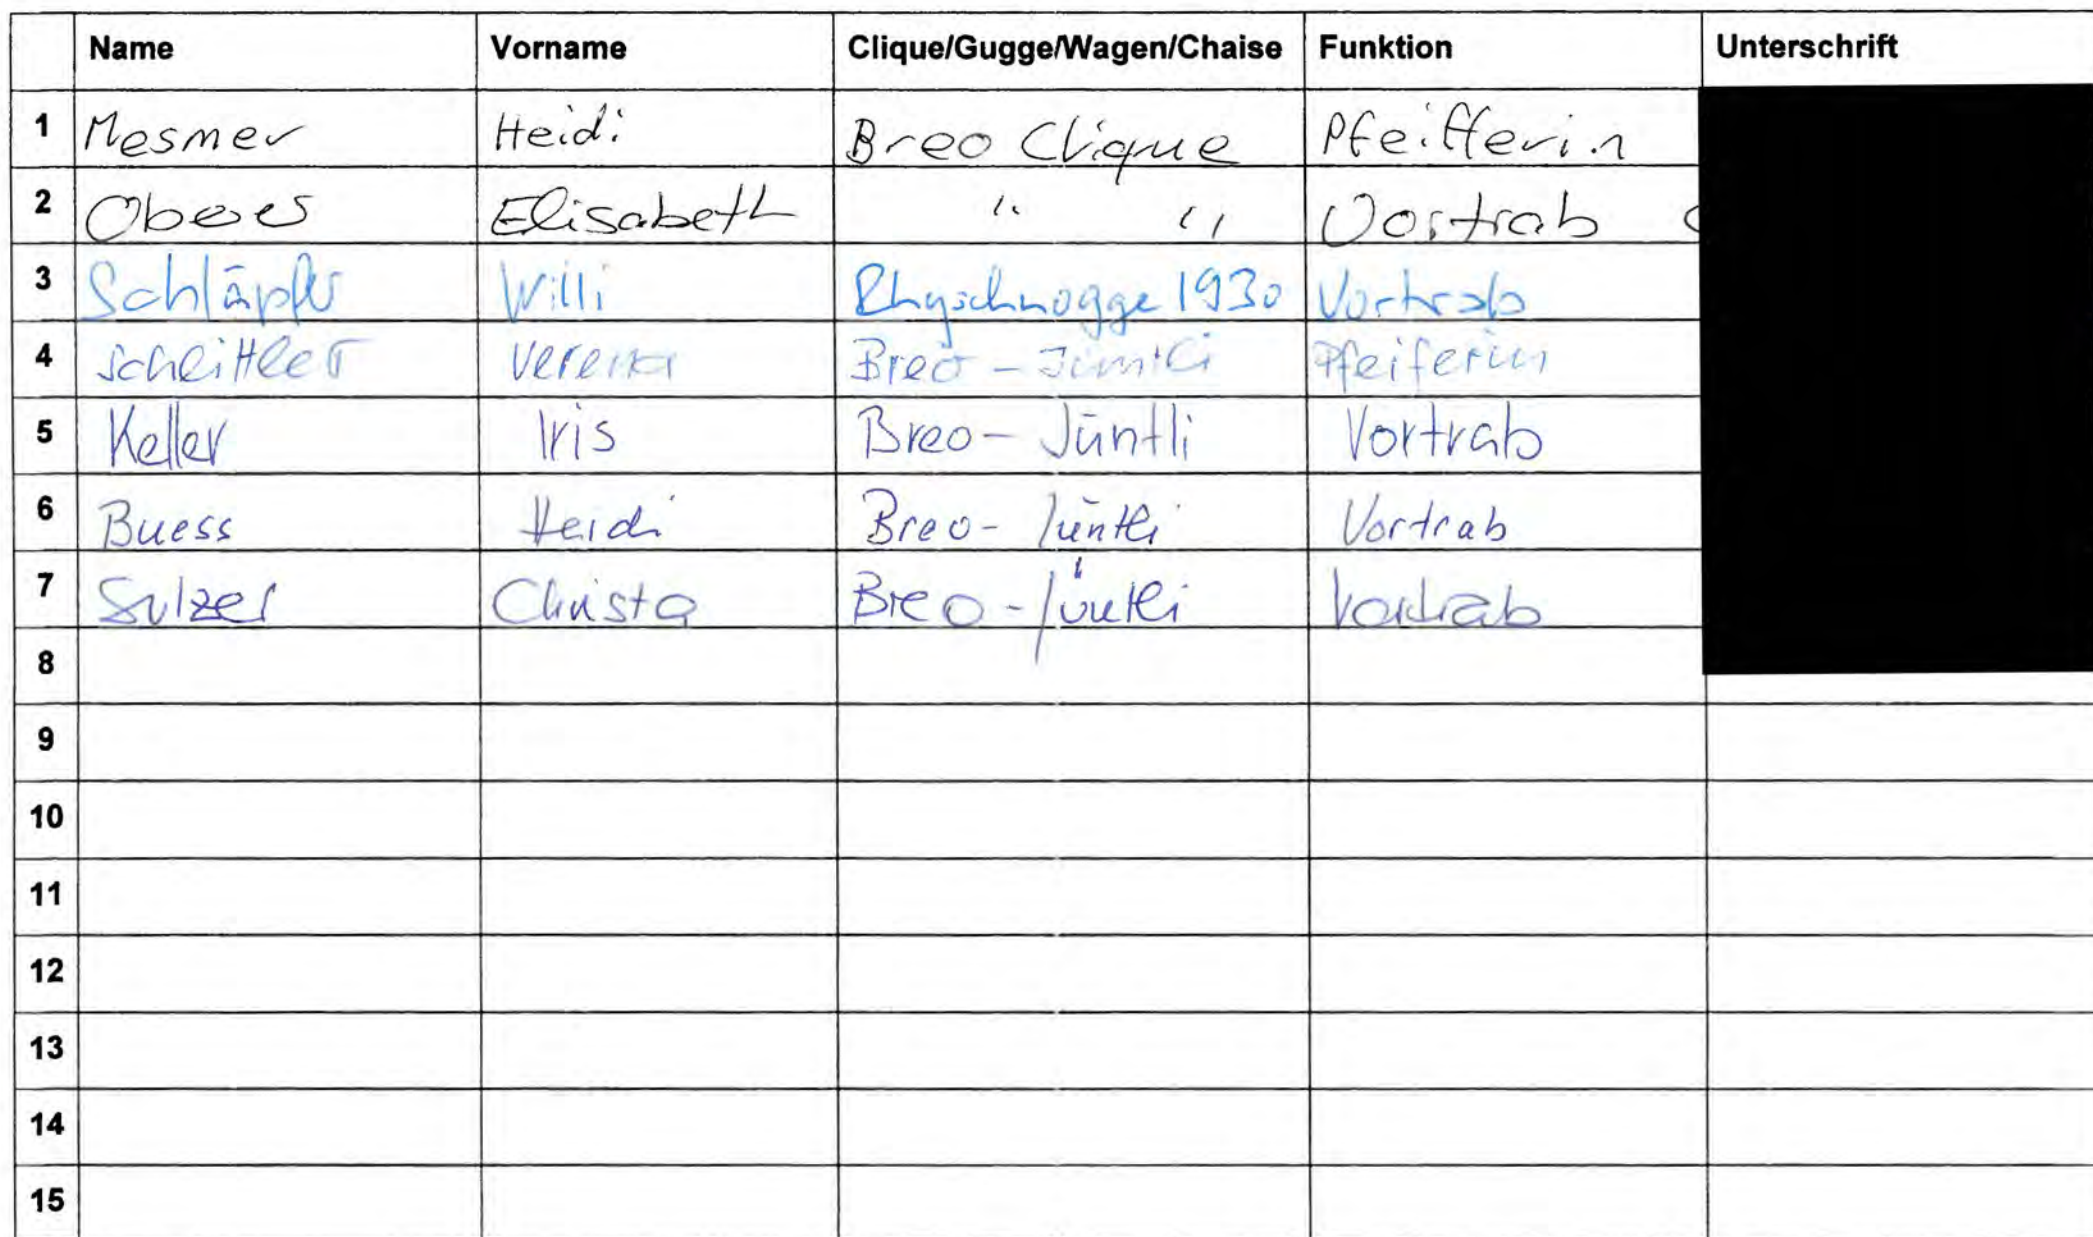 Name Vorname Clique/Gugge/Wagen/Chaise Funktion Unterschrift
1 Mesmer Heidi Breo Clique Pfeifferin
2 Oberer Elisabeth " " Vortrab
3 Schläpfer Willi Rhyschnogge 1930 Vortrab
4 Schlittler Verena Breo - Jüntli Pfeiferin
5 Keller Iris Breo - Jüntli Vortrab
6 Buess Heidi Breo - Jüntli Vortrab
7 Sulzer Christa Breo - Jüntli Vortrab
8
9
10
11
12
13
14
15